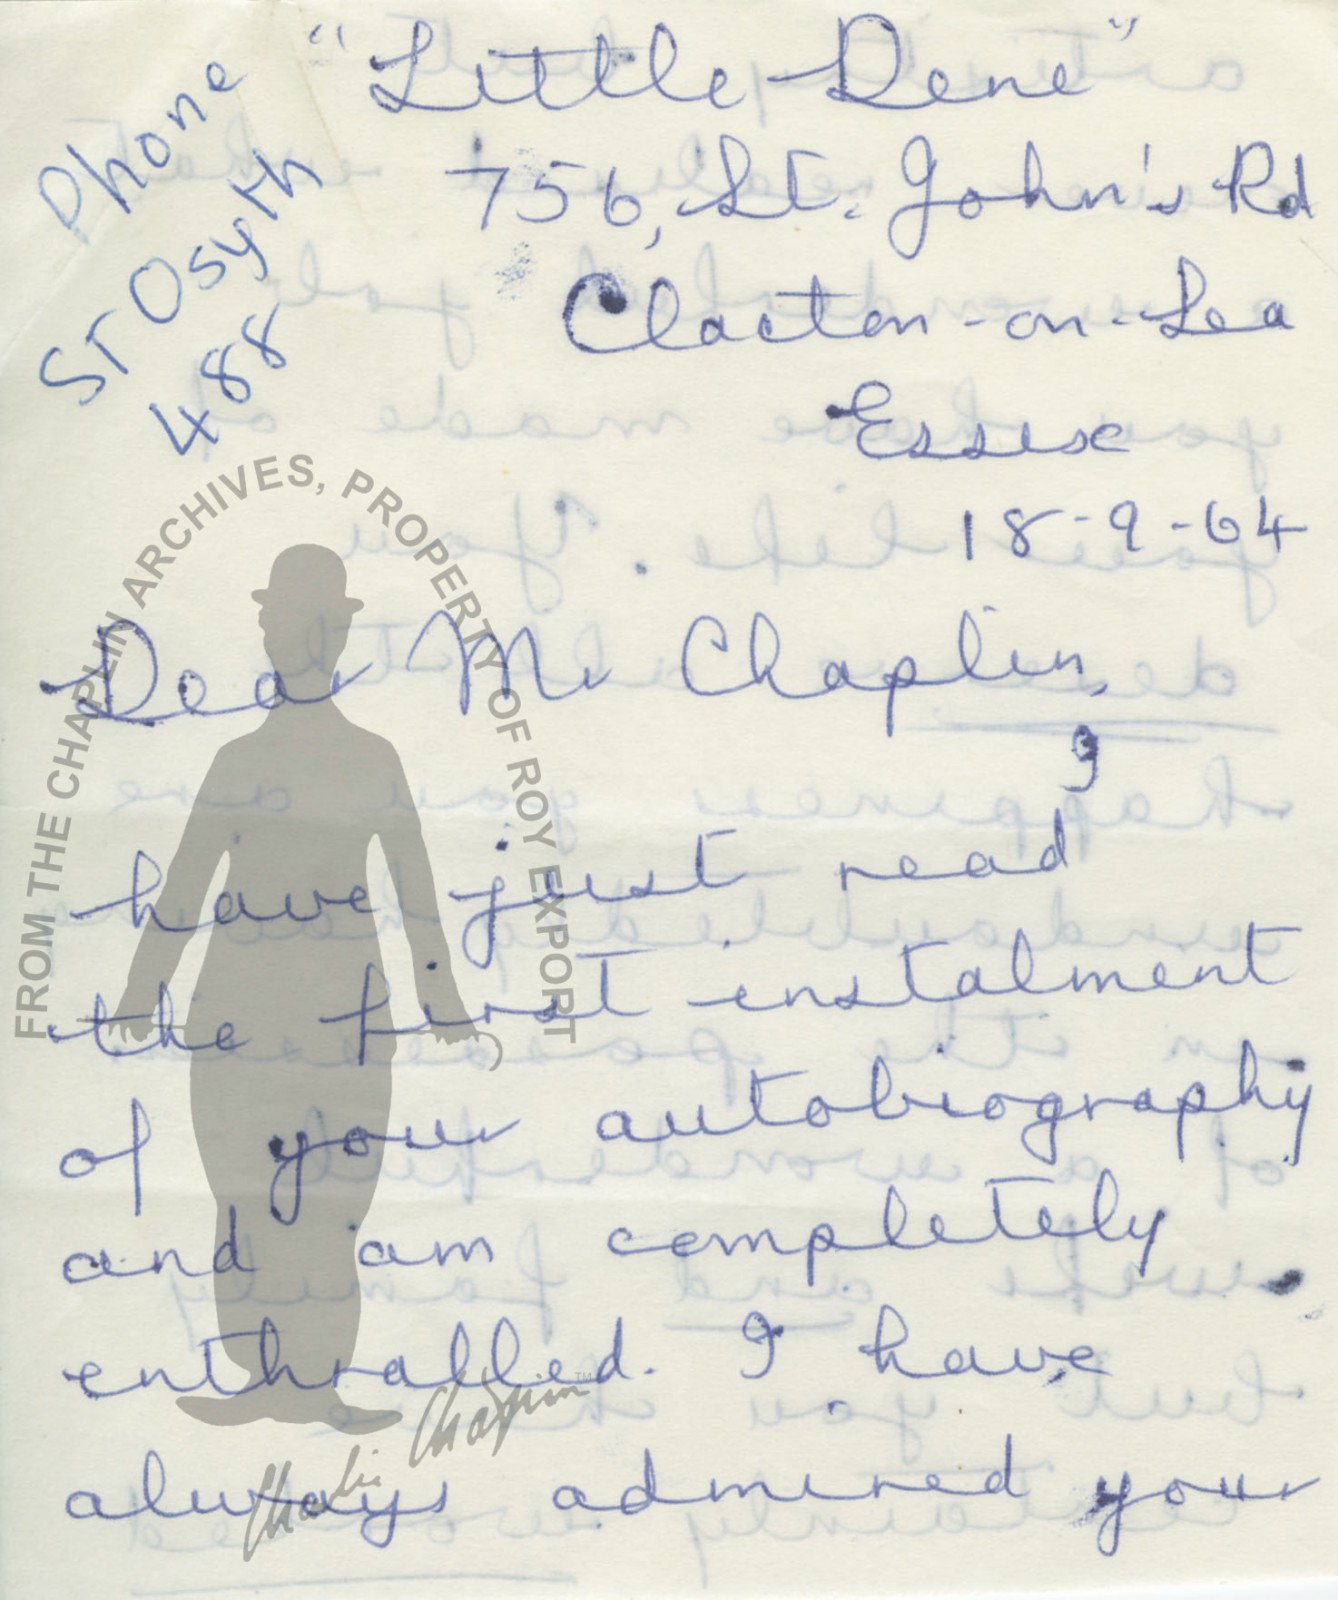 "Little Dene"
Phone
St Osyth
488
756, St. John's Rd
Clacton-on-Sea
Essex
18-9-64
Dear Mr Chaplin,
I
have just read
the first instalment
of your autobiography
and am completely
enthralled. I have
always admired your
FROM THE CHAPLIN ARCHIVES, PROPERTY OF ROY EXPORT
Charlie Chaplin™